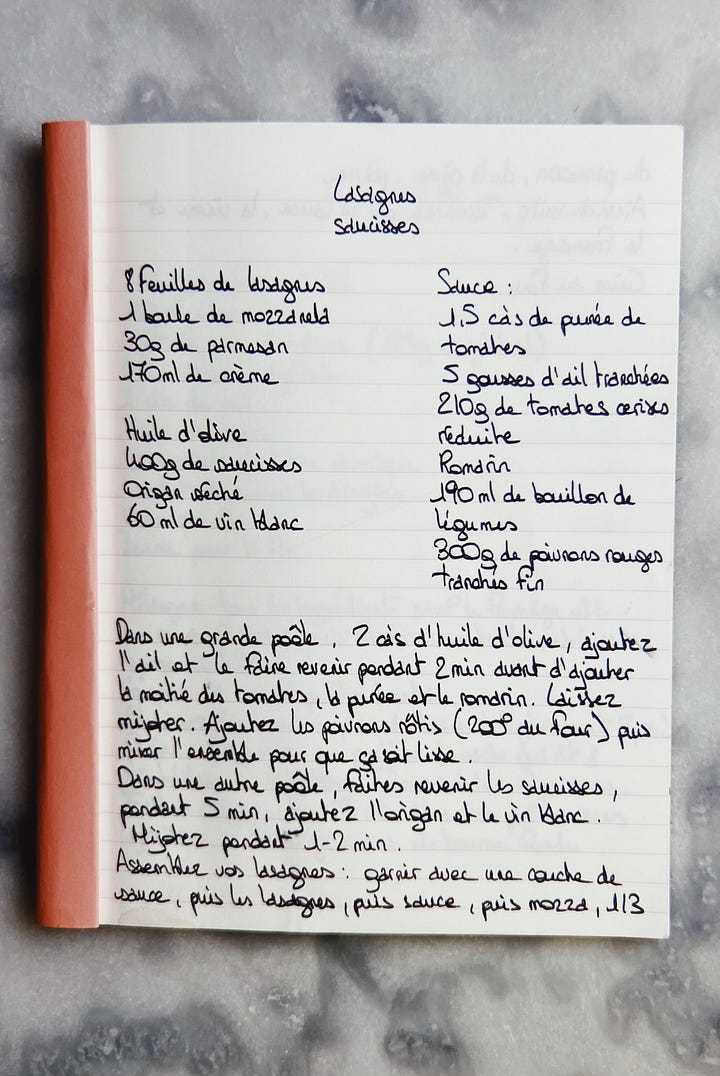 Lasagnes
saucisses
8 Feuilles de lasagnes
1 boule de mozzarela
30g de parmesan
170ml de crème
Huile d'olive
400g de saucisses
Origan séché
60 ml de vin blanc
Sauce :
1,5 càs de purée de
tomates
5 gousses d'ail tranchées
210g de tomates cerises
réduite
Romarin
190 ml de bouillon de
légumes
300g de poivrons rouges
tranchés fin
Dans une grande poêle, 2 càs d'huile d'olive, ajoutez
l'ail et le faire revenir pendant 2 min avant d'ajouter
la moitié des tomates, la purée et le romarin. Laissez
mijoter. Ajoutez les poivrons rôtis (200° du four) puis
mixer l'ensemble pour que ça soit lisse.
Dans une autre poêle, faites revenir les saucisses,
pendant 5 min, ajoutez l'origan et le vin blanc.
Mijotez pendant 1-2 min.
Assemblez vos lasagnes : garnir avec une couche de
sauce, puis les lasagnes, puis sauce, puis mozza, 1/3